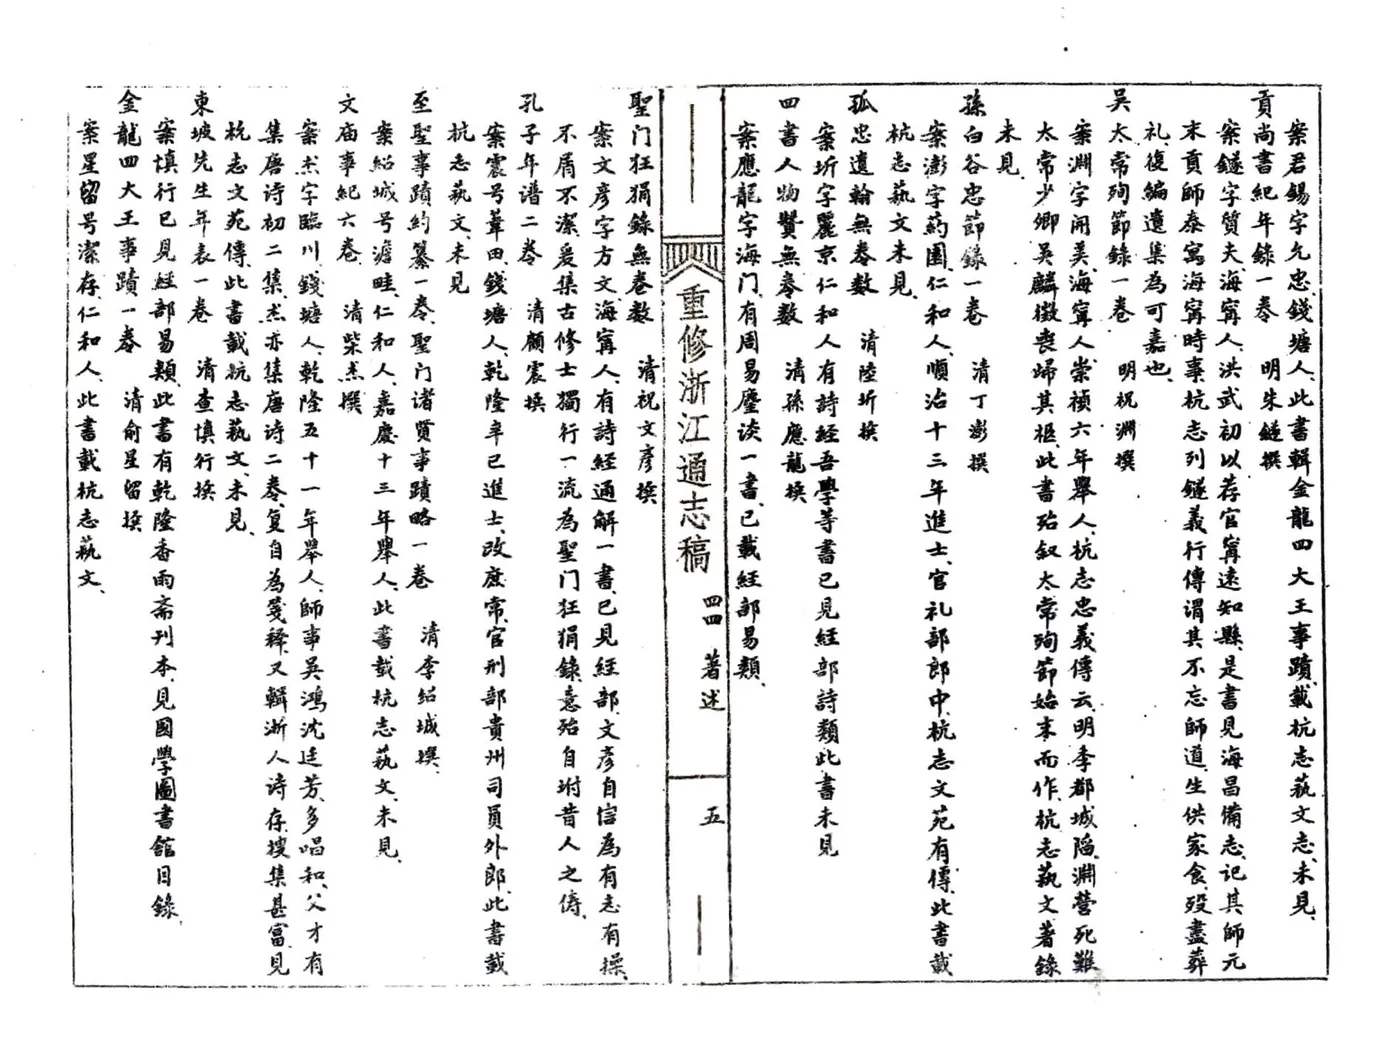 案君錫字允忠、錢塘人、此書輯金龍四大王事蹟、載杭志藝文志、未見、
貢尚書紀年錄一卷　明朱鐩撰
案鐩字質夫、海寗人、洪武初以荐官寗遠知縣、是書見海昌備志、記其師元
末貢師泰寓海寗時事、杭志列鐩義行傳、謂其不忘師道、生供家食、歿盡葬
礼、復編遺集為可嘉也、
吳太常殉節錄一卷　明祝淵撰
案淵字開美、海寗人、崇禎六年舉人、杭志忠義傳云、明季都城陷、淵營死難
太常少卿吳麟徵喪歸其柩、此書殆叙太常殉節始末而作、杭志藝文著錄
未見、
孫白谷忠節錄一卷　清丁澎撰
案澎字葯園、仁和人、順治十三年進士、官礼部郎中、杭志文苑有傳、此書載
杭志藝文未見、
孤忠遺翰無卷數　清陸圻撰
案圻字麗京、仁和人、有詩經吾學等書、已見經部詩類、此書未見
四書人物贊無卷數　清孫應龍撰
案應龍字海门、有周易塵谈一書、已載經部易類、
重修浙江通志稿　四四　著述　五
聖门狂狷錄無卷數　清祝文彥撰
案文彥字方文、海寗人、有詩經通解一書、已見經部、文彥自信為有志有操、
不屑不潔、爰集古修士獨行一流為聖门狂狷錄、意殆自坿昔人之儔、
孔子年谱二卷　清顧震撰
案震号葦田、錢塘人、乾隆辛巳進士、改庶常、官刑部貴州司員外郎、此書載
杭志藝文、未見
至聖事蹟約纂一卷、聖门诸贤事蹟略一卷　清李绍城撰、
案紹城号澹畦、仁和人、嘉慶十三年舉人、此書載杭志藝文、未見、
文庙事紀六卷　清柴杰撰
案杰字臨川、錢塘人、乾隆五十一年舉人、師事吳鴻沈廷芳、多唱和、父才有
集唐诗初二集、杰亦集唐诗二卷、复自為箋释、又輯浙人诗存、搜集甚富、見
杭志文苑傳、此書載杭志藝文、未見、
東坡先生年表一卷　清查慎行撰
案慎行已見經部易類、此書有乾隆香雨斋刊本、見國學圖書館目錄、
金龍四大王事蹟一卷　清俞星留撰
案星留号潔存、仁和人、此書載杭志藝文、